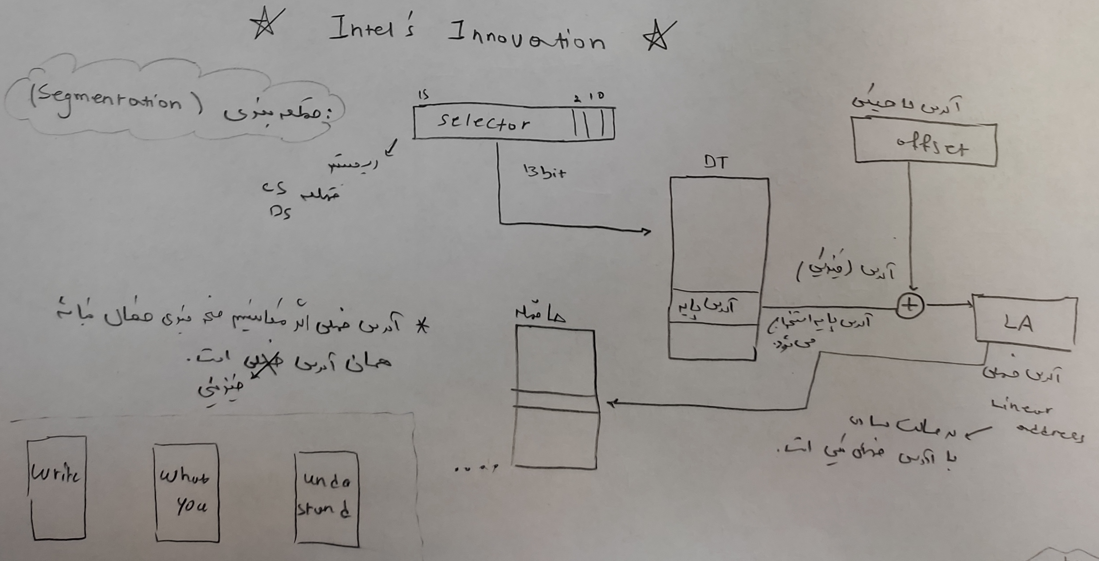 ☆ Intel's Innovation ☆
(Segmentation) قطعه بندی:
15 2 1 0
selector
CS
DS قطعه
13 bit
DT
آدرس پایه
offset
آدرس (فیزیکی)
آدرس پایه استخراج
می شود.
+
LA
آدرس خطی
Linear
address
حافظه
* آدرس خطی اگر مکانیسم صفحه بندی فعال نباشد
همان آدرس خطی است.
فیزیکی
با آدرس فیزیکی است.
....
write
what
you
unde
stand